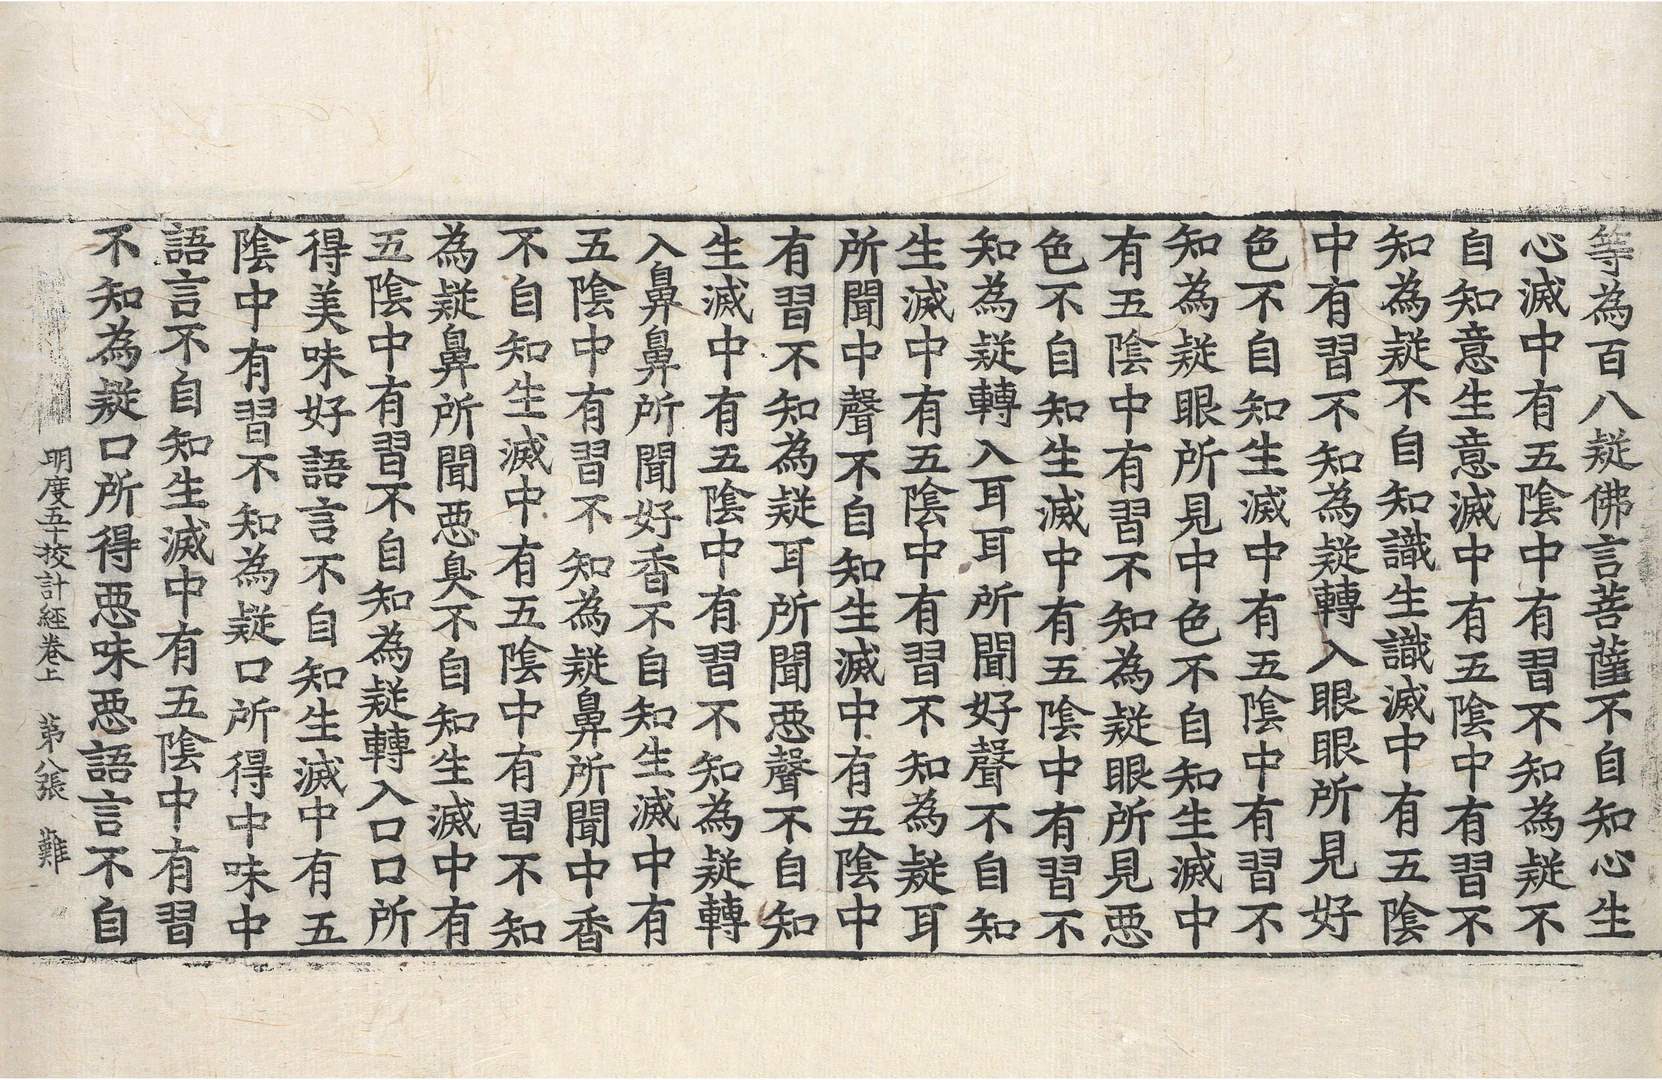 等為百八疑佛言菩薩不自知心生
心滅中有五陰中有習不知為疑不
自知意生意滅中有五陰中有習不
知為疑不自知識生識滅中有五陰
中有習不知為疑轉入眼眼所見好
色不自知生滅中有五陰中有習不
知為疑眼所見中色不自知生滅中
有五陰中有習不知為疑眼所見悪
色不自知生滅中有五陰中有習不
知為疑轉入耳耳所聞好聲不自知
生滅中有五陰中有習不知為疑耳
所聞中聲不自知生滅中有五陰中
有習不知為疑耳所聞悪聲不自知
生滅中有五陰中有習不知為疑轉
入鼻鼻所聞好香不自知生滅中有
五陰中有習不知為疑鼻所聞中香
不自知生滅中有五陰中有習不知
為疑鼻所聞悪臭不自知生滅中有
五陰中有習不自知為疑轉入口口所
得美味好語言不自知生滅中有五
陰中有習不知為疑口所得中味中
語言不自知生滅中有五陰中有習
不知為疑口所得悪味悪語言不自
明度五十校計經卷上 第八張 難